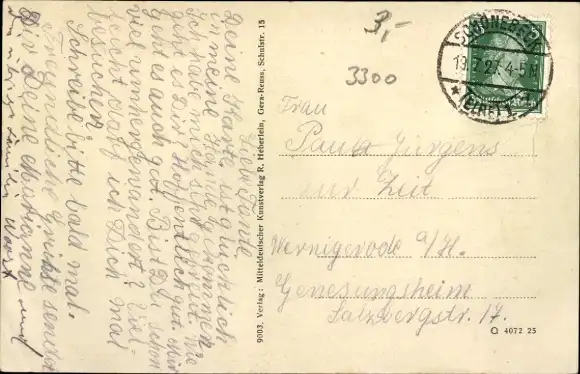 Liebe Tante
Deine Karte ist glücklich
in meine Hände gekommen.
Ich habe mich sehr gefreut. Wie
geht es Dir? Hoffentlich gut. Mir
geht es auch gut. Bist Du schon
viel umhergewandert? Viel-
leicht darf ich Dich mal
besuchen.
Schreibe bitte bald mal.
Freundliche Grüsse sendet
Dir Deine Marianne
9003. Verlag: Mitteldeutscher Kunstverlag R. Heberlein, Gera-Reuss, Schulstr. 15
3,-
3300
SCHÖNEBECK
19.7.27.4-5N
* (ELBE)
Frau
Paula Jürgens
zur Zeit
Wernigerode a/H.
Genesungsheim
Salzbergstr. 17.
Q 4072 25